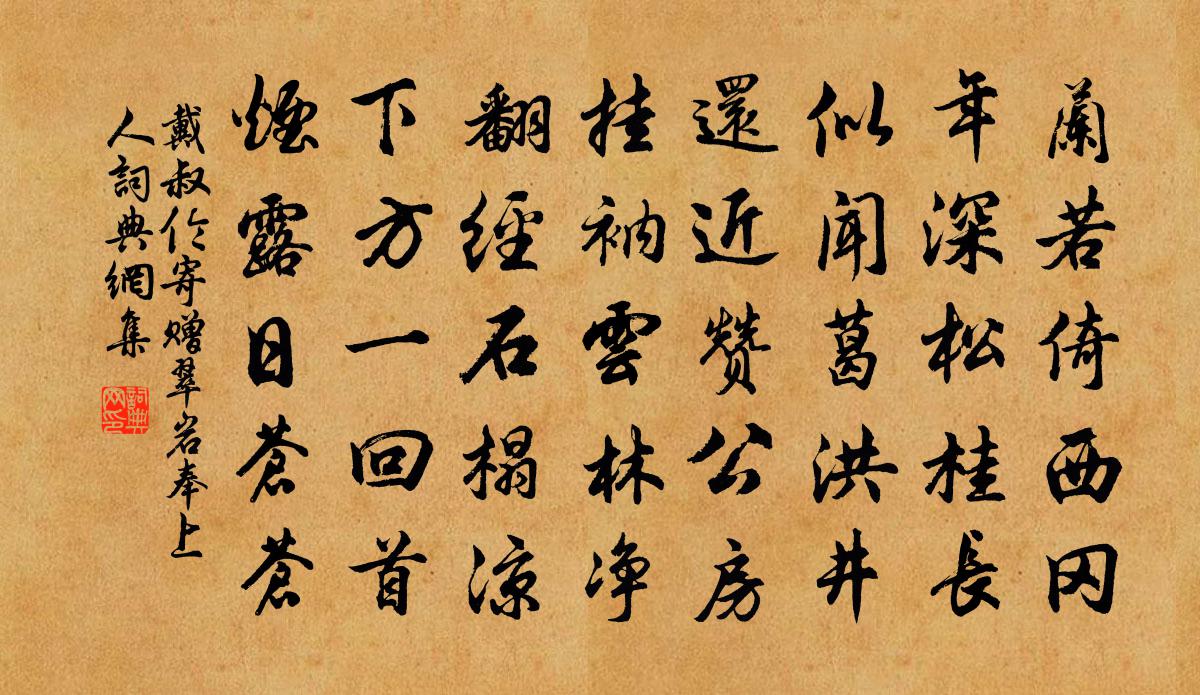 蘭若倚西冈
年深松桂長
似闻葛洪井
還近赞公房
挂衲雲林净
翻經石榻凉
下方一回首
煙露日蒼蒼
戴叔伦寄赠翠岩奉上
人詞典網集
詞典
网印